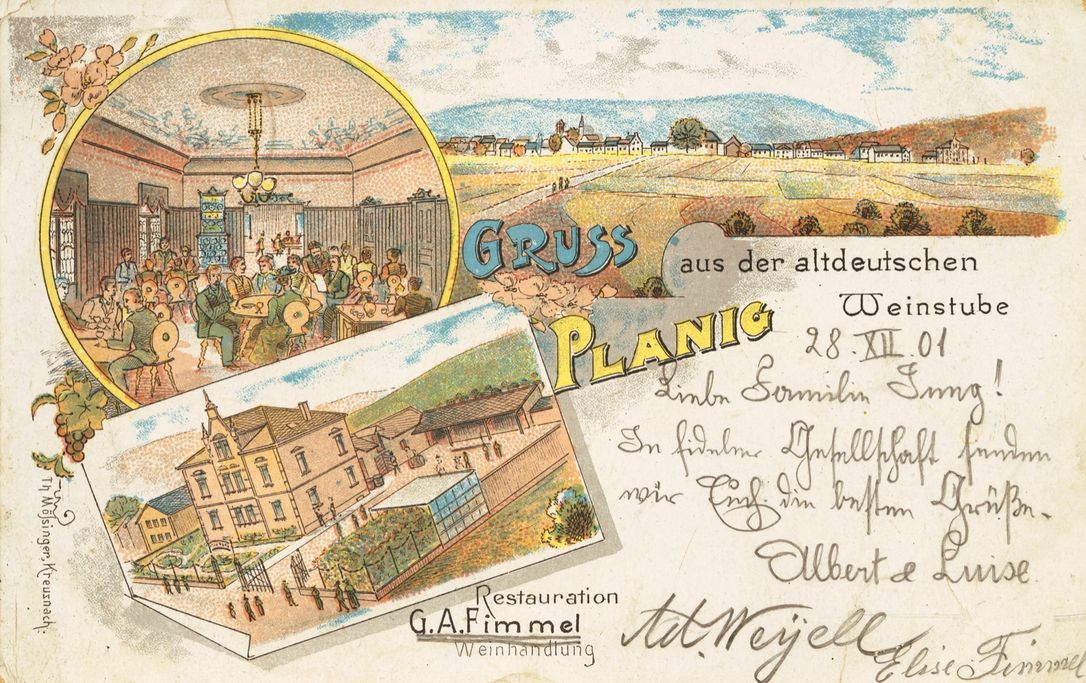 GRUSS
aus der altdeutschen
Weinstube
PLANIG
28 XII. 01
Liebe Familie Jung!
In fideler Gesellschaft senden
wir Euch die besten Grüße.
Albert & Luise
Ad. Weyell
Elise Fimmel
Restauration
G.A.Fimmel
Weinhandlung
Th. Mössinger, Kreusnach.